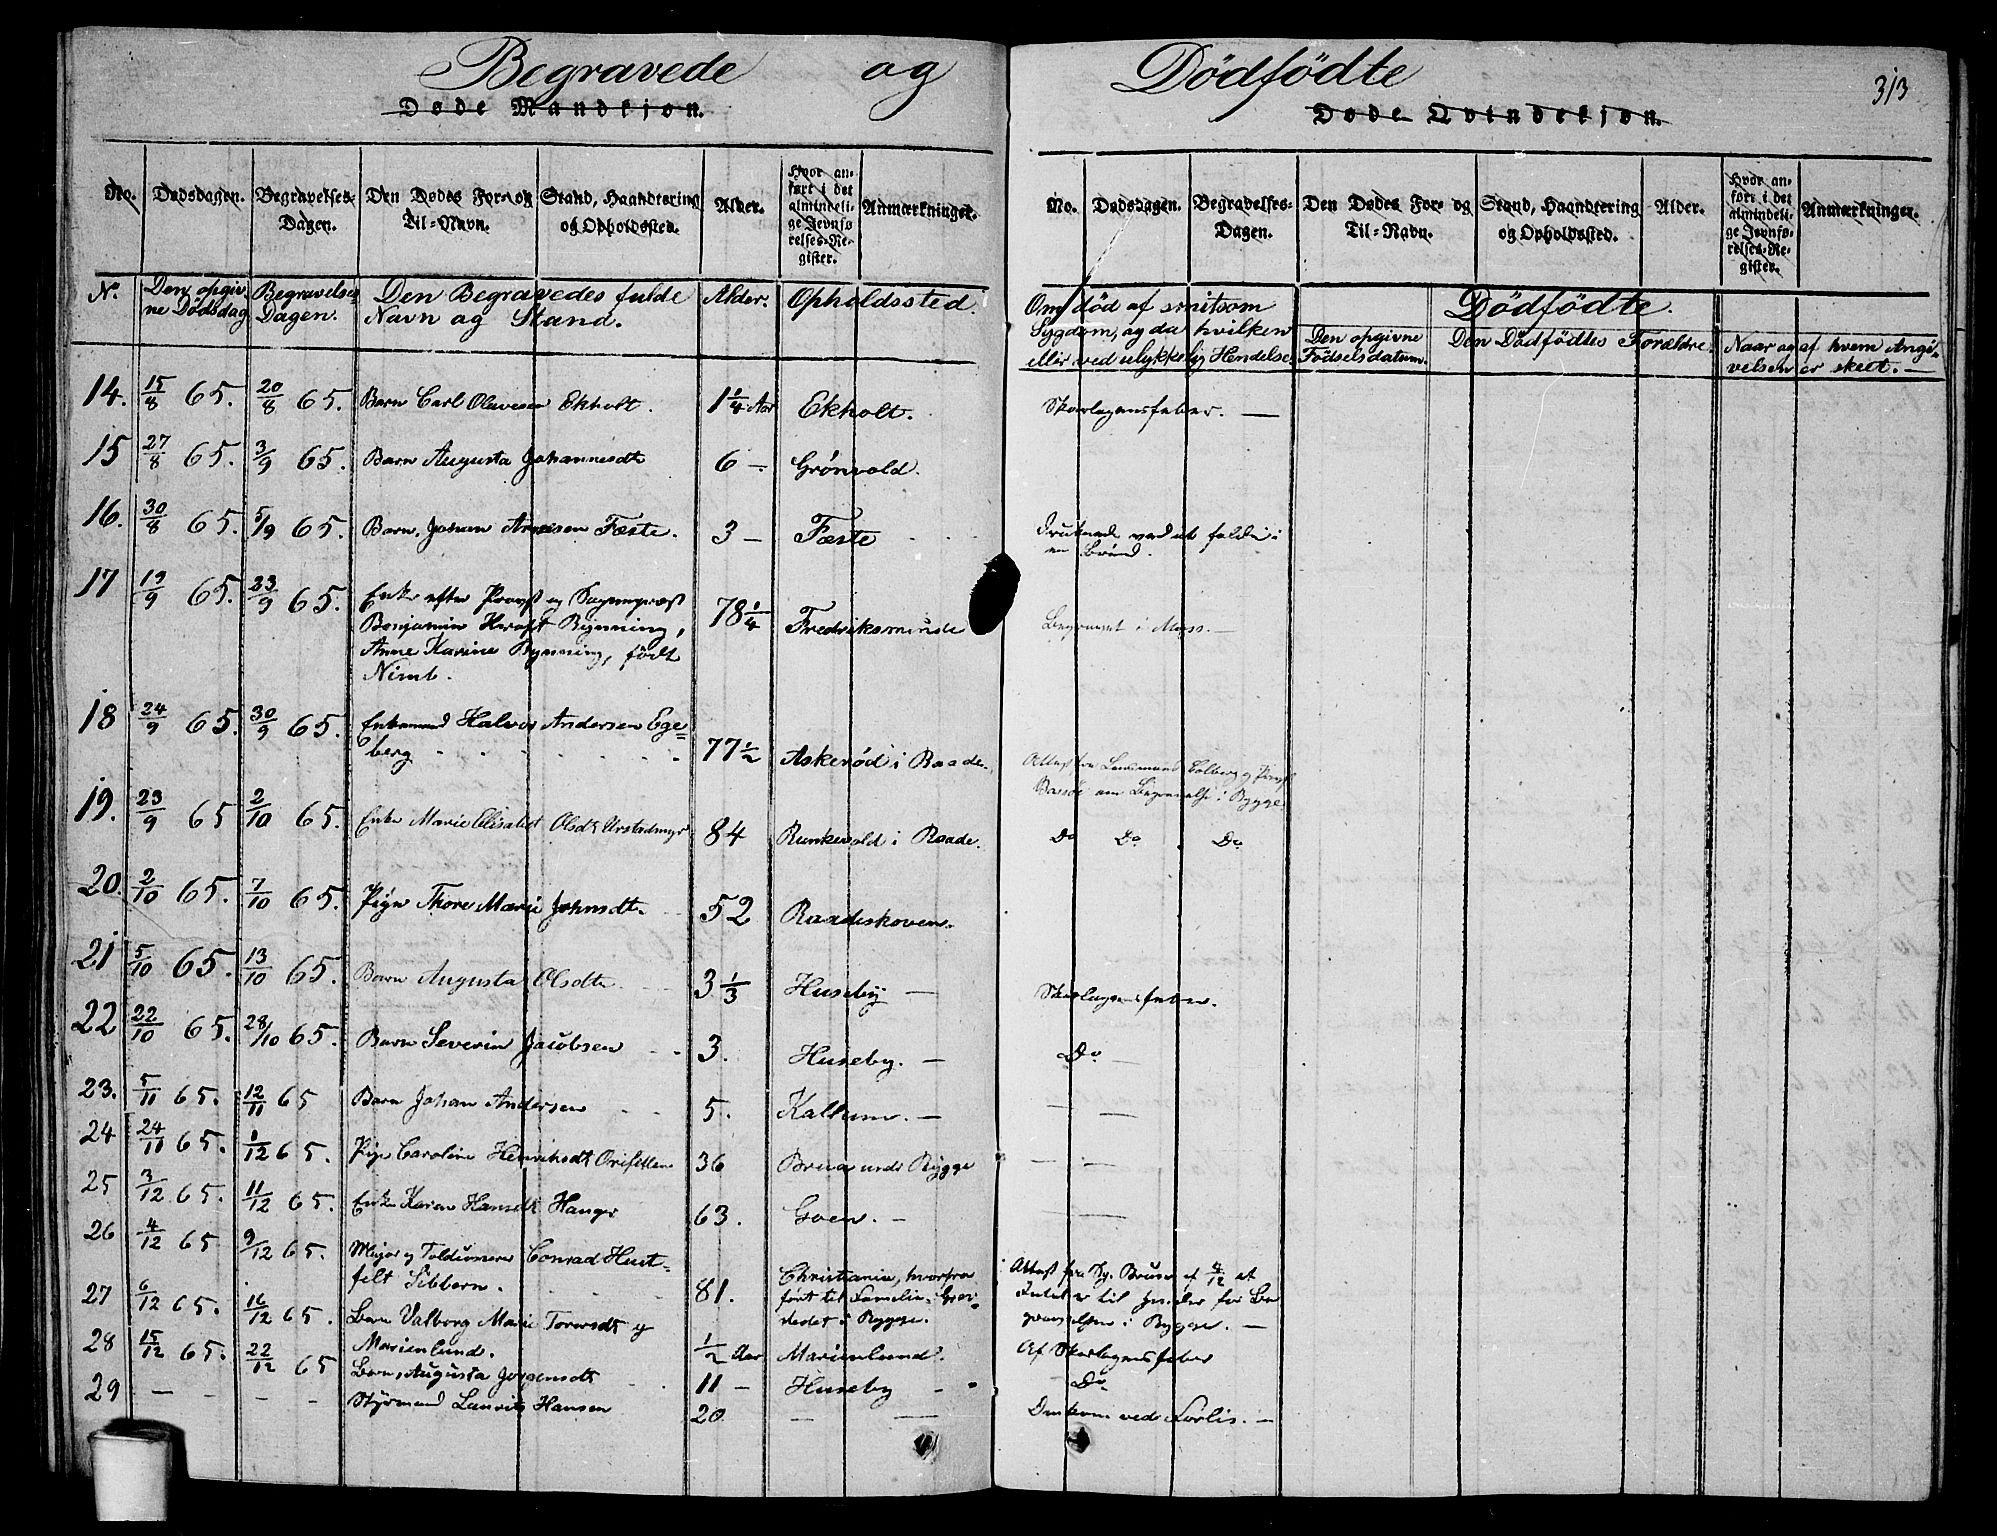 Begravede og Dödfödte
313
Døde Mandkjøn.
Døde Qvindekjøn.
No. Dødsdagen. Begravelses-Dagen. Den Dødes For- og Til-Navn. Stand, Haandtering og Opholdssted. Alder. Hvor anført i det almindelige Jevnførelses-Register. Anmærkninger.
No. Dødsdagen. Begravelses-Dagen. Den Dødes For- og Til-Navn. Stand, Haandtering og Opholdssted. Alder. Hvor anført i det almindelige Jevnførelses-Register. Anmærkninger.
N. Den opgivne Dødsdag Begravelses Dagen. Den Begravedes fulde Navn og Stand. Alder. Opholdssted.
Om död af smitsom Sygdom, og da hvilken eller ved ulykkelig Hendelse.
Dödfödte.
Den opgivne Födselsdatum. Den Dödfödtes Forældre. Naar og af hvem Angivelsen er skeet.
14. 15/8 65. 20/8 65. Barn Carl Olavesen Ekholt. 1 1/4 Aar Ekholt. Skarlagensfeber.
15 27/8 65. 3/9 65. Barn Augusta Johannesdt 6 - Grönvold.
16. 30/8 65. 5/9 65. Barn Johan Arnesen Fæste. 3 - Fæste Druknede ved at falde i
en Brönd.
17 19/9 65. 23/9 65. Enke efter Provst og Sognepræst
Benjamin Bynning, 78 1/4 Fredriksminde Begravet i Moss.
Anne Karine Bynning, födt
Nimb.
18 24/9 65. 30/9 65. Enkemand Halvor Andersen Ege=
berg 77 1/2 Askeröd i Raade. Attest fra Lensmand og Provst
om Begravelse i Rygge
19. 23/9 65 2/10 65. Enke Marie Elisabet Olsdt 84 Runkevold i Raade. Do Do Do
20. 2/10 65. 7/10 65. Pige Thore Marie Johnsdt. 52 Raadeskoven.
21 5/10 65. 13/10 65. Barn Augusta Olsdtr 3 1/3 Huseby Skarlagensfeber.
22 22/10 65. 28/10 65. Barn Severin Jacobsen 3. Huseby. Do
23. 5/11 65. 12/11 65 Barn Johan Andersen 5. Kallum.
24 24/11 65. 1/12 65. Pige Caroline Henriksdt 36 Brua unde Rygge
25 3/12 65. 11/12 65. Enke Karen Hansdt Hauger 63. Goen.
26 4/12 65 9/12 65. Major og Toldinspektör Conrad Huit=
felt Sibbern. 81. Christiania, hvorfra
fört til Familie-Grav-
stedet i Rygge.
Attest fra Sg. Bruun af 4/12 at
Intet er til Hinder for Be
gravelsen i Rygge.
27 6/12 65. 16/12 65. Barn Valborg Marie Toresdt
Marienlund. 1/2 Aar Marienlund. Af Skarlagensfeber
28 15/12 65. 22/12 65 Barn Augusta Jörgensdt 11 - Huseby Do
29 - - - - Styrmand Lauritz Hansen 20 Omkom ved Forlis.